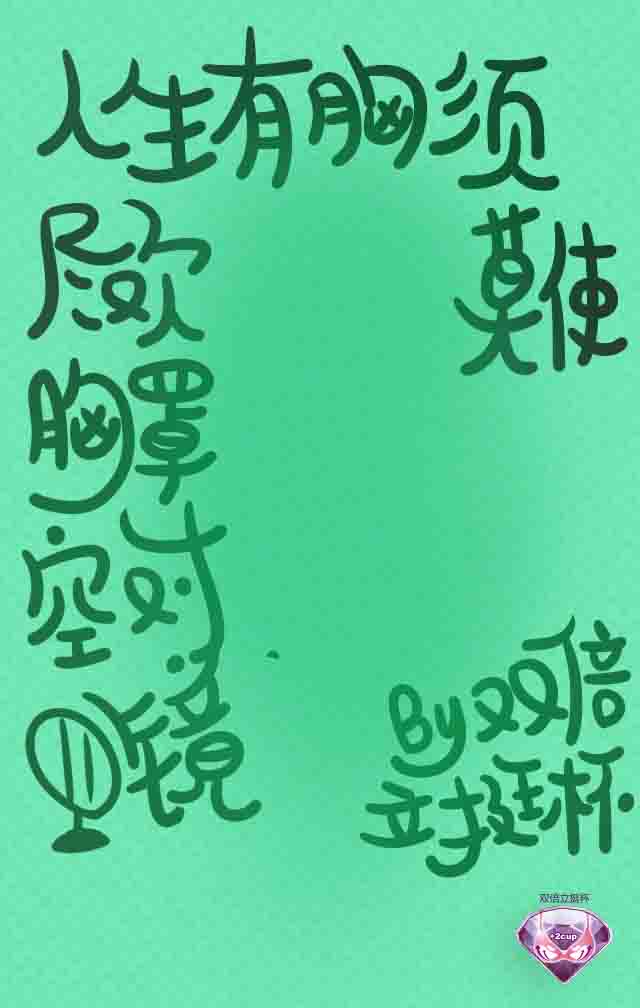 人生有胸须
尽欢
莫使
胸罩
空对
镜
By双倍
立挺杯
双倍立挺杯
+2cup